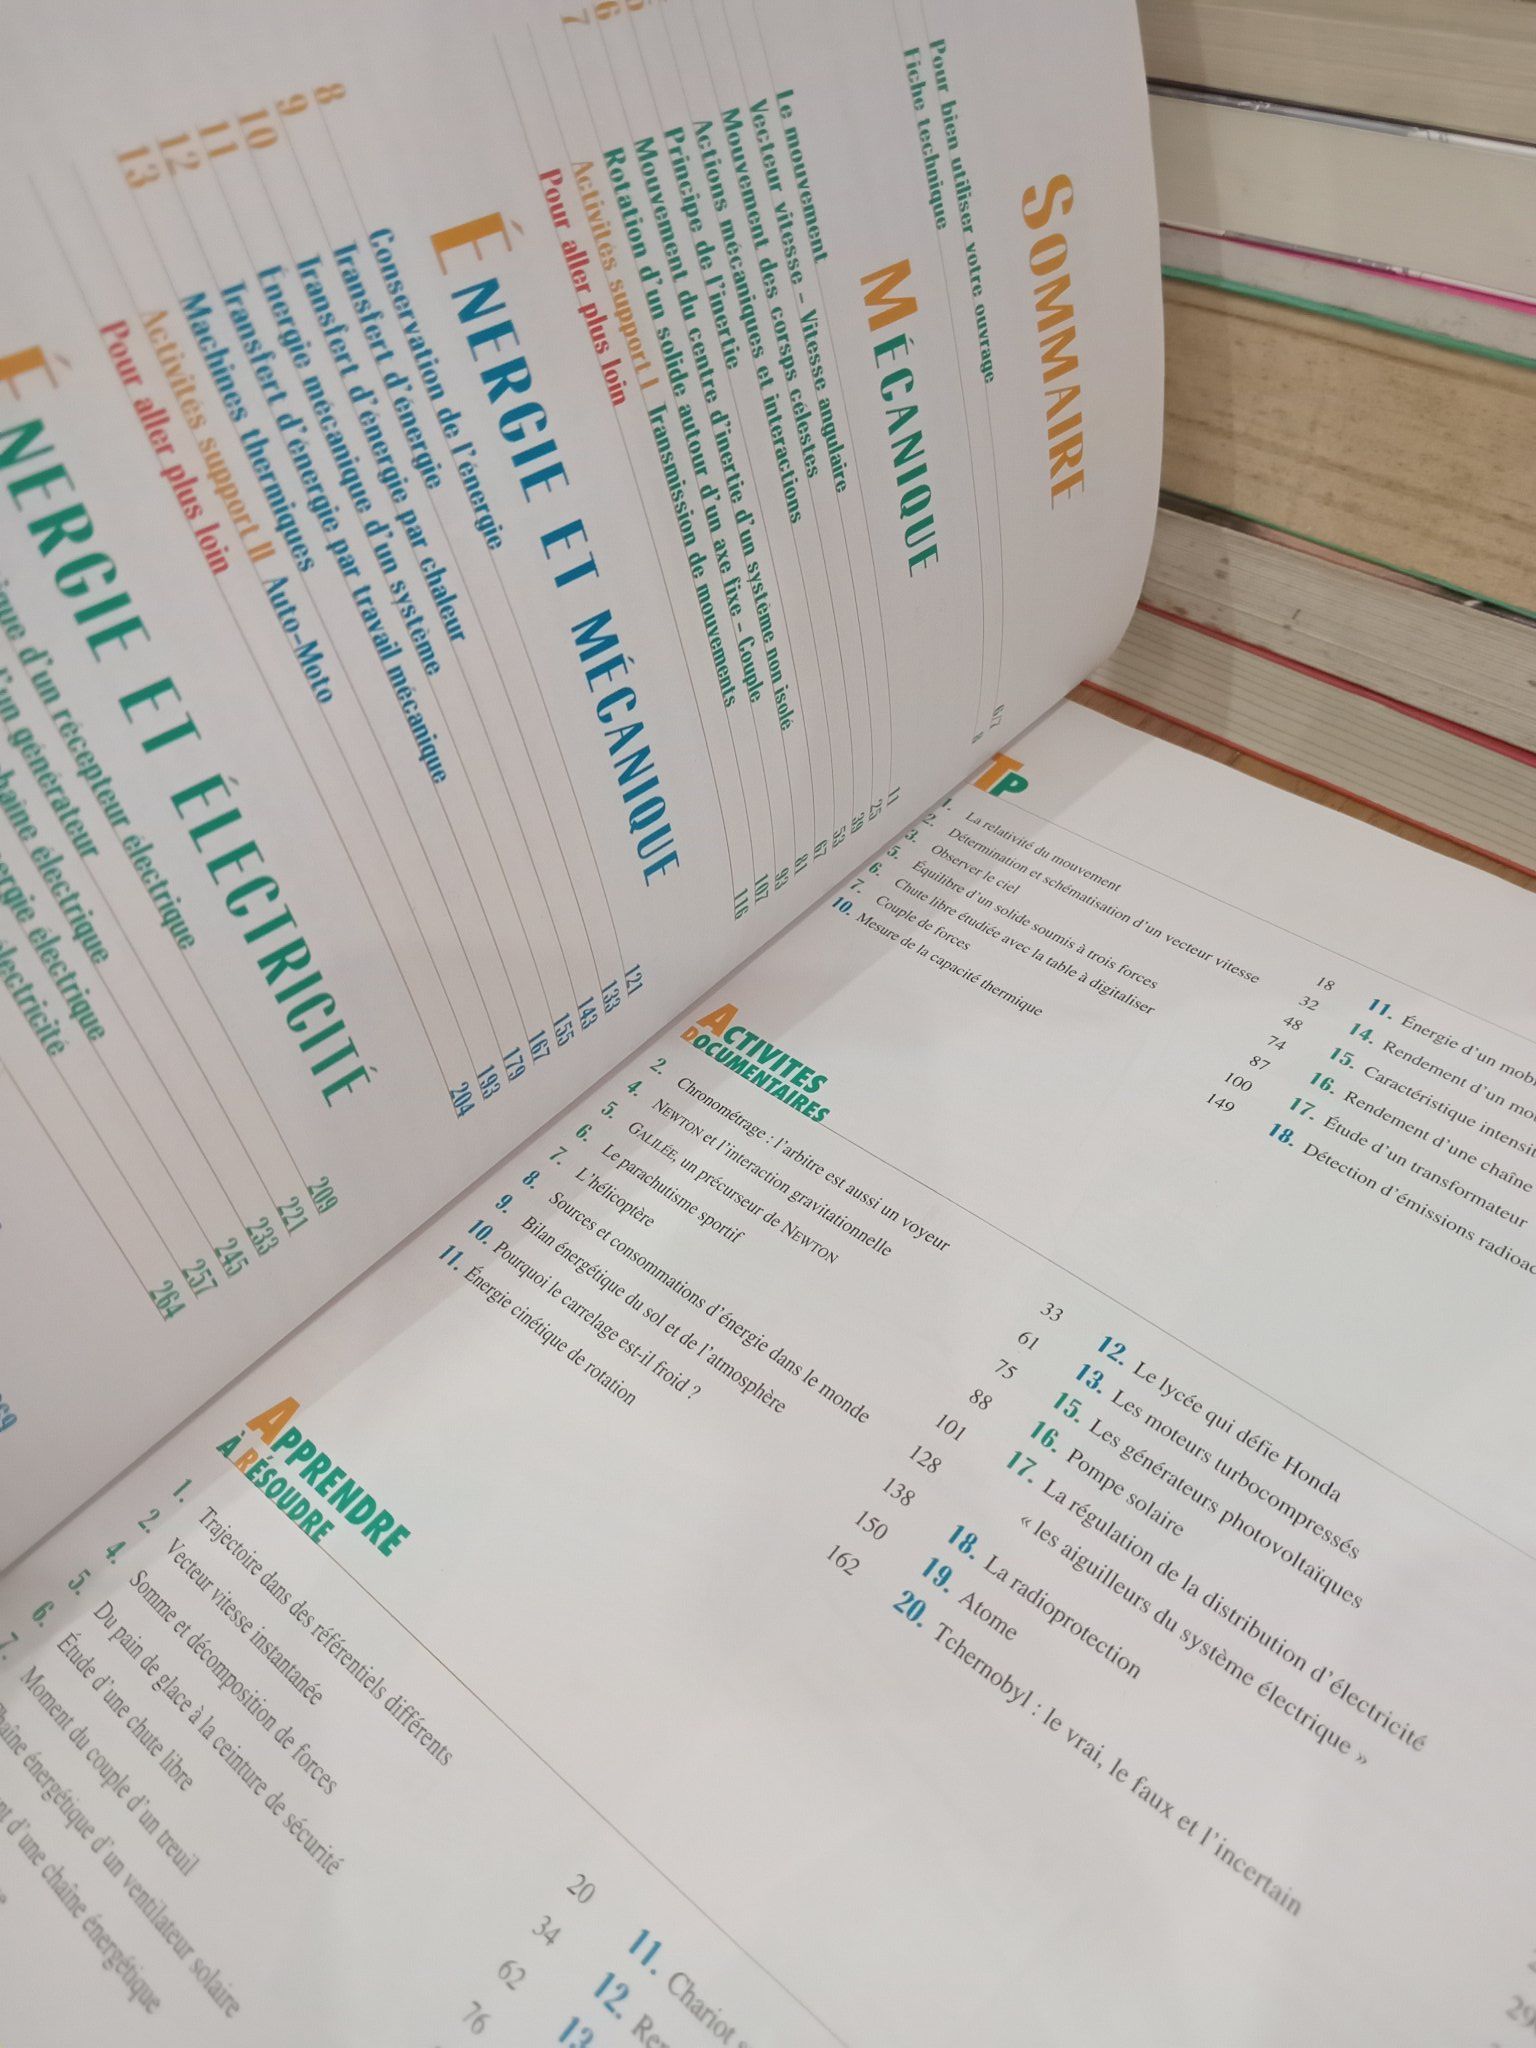 SOMMAIRE
Pour bien utiliser votre ouvrage 6/7
Fiche technique 8
MÉCANIQUE
Le mouvement 11
Vecteur vitesse - Vitesse angulaire 25
Mouvement des corsps célestes 39
Actions mécaniques et interactions 53
Principe de l'inertie 67
6 Mouvement du centre d'inertie d'un système non isolé 81
7 Rotation d'un solide autour d'un axe fixe - Couple 93
Activités support I Transmission de mouvements 107
Pour aller plus loin 116
ÉNERGIE ET MÉCANIQUE
8 Conservation de l'énergie 121
9 Transfert d'énergie 133
10 Transfert d'énergie par chaleur 143
11 Énergie mécanique d'un système 155
12 Transfert d'énergie par travail mécanique 167
13 Machines thermiques 179
Activités support II Auto-Moto 193
Pour aller plus loin 204
ÉNERGIE ET ÉLECTRICITÉ
d'un récepteur électrique 209
d'un générateur 221
chaîne électrique 233
électrique 245
électricité 257
264
269
TP
1. La relativité du mouvement 18
2. Détermination et schématisation d'un vecteur vitesse 32
3. Observer le ciel 48
5. Équilibre d'un solide soumis à trois forces 74
6. Chute libre étudiée avec la table à digitaliser 87
7. Couple de forces 100
10. Mesure de la capacité thermique 149
11. Énergie d'un
14. Rendement d'un
15. Caractéristique
16. Rendement d'une chaîne
17. Étude d'un transformateur
18. Détection d'émissions
ACTIVITES
DOCUMENTAIRES
2. Chronométrage : l'arbitre est aussi un voyeur 33
4. NEWTON et l'interaction gravitationnelle 61
5. GALILÉE, un précurseur de NEWTON 75
6. Le parachutisme sportif 88
7. L'hélicoptère 101
8. Sources et consommations d'énergie dans le monde 128
9. Bilan énergétique du sol et de l'atmosphère 138
10. Pourquoi le carrelage est-il froid ? 150
11. Énergie cinétique de rotation 162
12. Le lycée qui défie Honda
13. Les moteurs turbocompressés
15. Les générateurs photovoltaïques
16. Pompe solaire
17. La régulation de la distribution d'électricité
« les aiguilleurs du système électrique »
18. La radioprotection
19. Atome
20. Tchernobyl : le vrai, le faux et l'incertain
APPRENDRE
À RÉSOUDRE
1. Trajectoire dans des référentiels différents 20
2. Vecteur vitesse instantanée 34
4. Somme et décomposition de forces 62
5. Du pain de glace à la ceinture de sécurité 76
6. Étude d'une chute libre
7. Moment du couple d'un treuil
énergétique d'un ventilateur solaire
d'une chaîne énergétique
11. Chariot
12.
13.